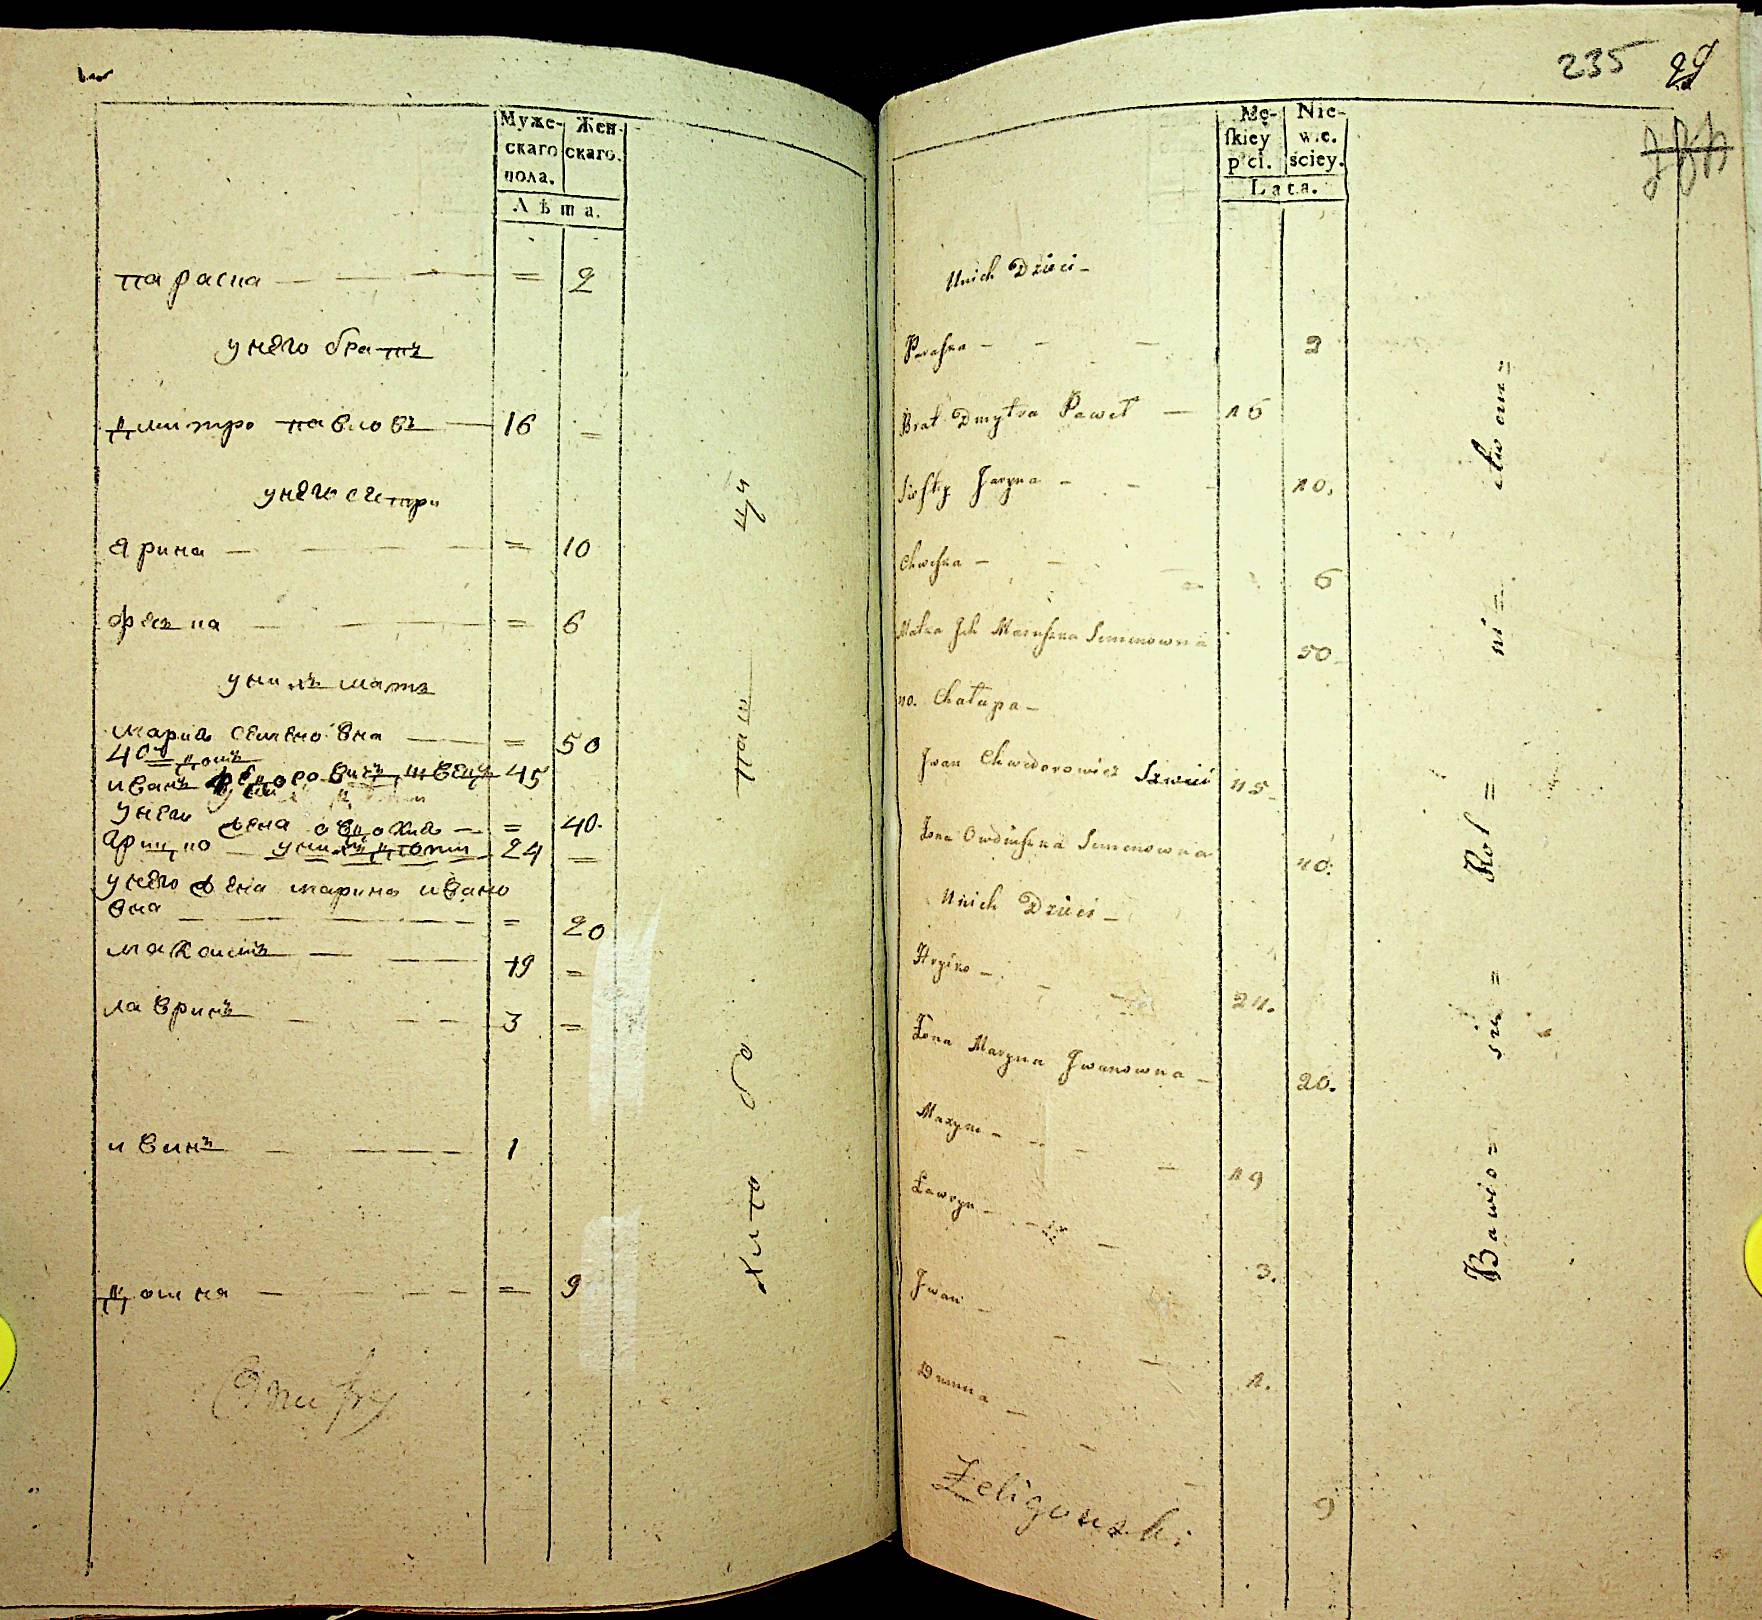 Муже- Жен-
скаго скаго.
пола.
Лѣта.
параска — = 2
у него братъ
дмитро павловъ — 16 =
у него сестри
ярина — = 10
феска — = 6
у нихъ мать
мария семеновна — = 50
40й домъ
иванъ федоровичъ швецъ 45
у него жена авдохия — = 40.
грицко — у них дети 24 =
у него жена марина ивано
вна — = 20
максимъ — 19 =
лавринъ — 3 =
иванъ — 1
домка — = 9
235
Mę- Nie-
skiey wie-
płci. ściey.
Lata.
U nich Dzieci -
Paraska - - - 2
Brat Dmytra Paweł — 16
Siostry Jaryna - - - 10.
Chweska - - - 6
Matka Ich Maruszka Semenowna 50
40. Chałupa -
Jwan Chwedorowicz Szwiec 45
Żona Owdiuszka Semenowna 40.
U nich Dzieci -
Hryćko - - - 24.
Żona Maryna Jwanowna - 20.
Maxym - - - 19
Ławryn - - - 3.
Jwan - - - 1.
Domna - - - 9
Żeligowski
Bawio= sie= Rol= ni= ctwem=